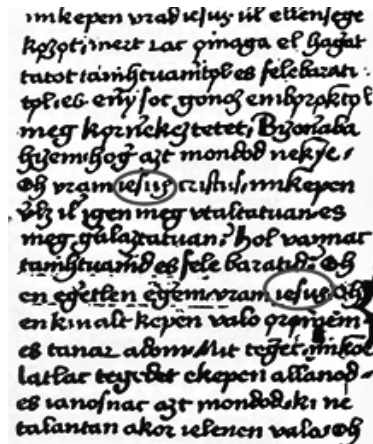 mikepen vrad iesus ül ellensege
kozot, mert lac omaga el hagat
tatot tanituanitol es felebarati
tol, es eny soc gonoz emborokto l
meg kornekeztetet, Bizonaba
hyzem hog azt mondod nekye,
Oh vram iesus cristus, mikepen
vlz il igen meg vtaltatuan es
meg gulaztatuan, hol vannac
tanituanid es fele baratid, Oh
en egetlen egem vram iesus, Oh
en kinalt kepen valo oromem
es tanaz adom, Mit teget, mikor
latlac tegedet ekepen allanod
es ianosnac azt mondod, ki ne
talantan akor ielenen vala, Oh